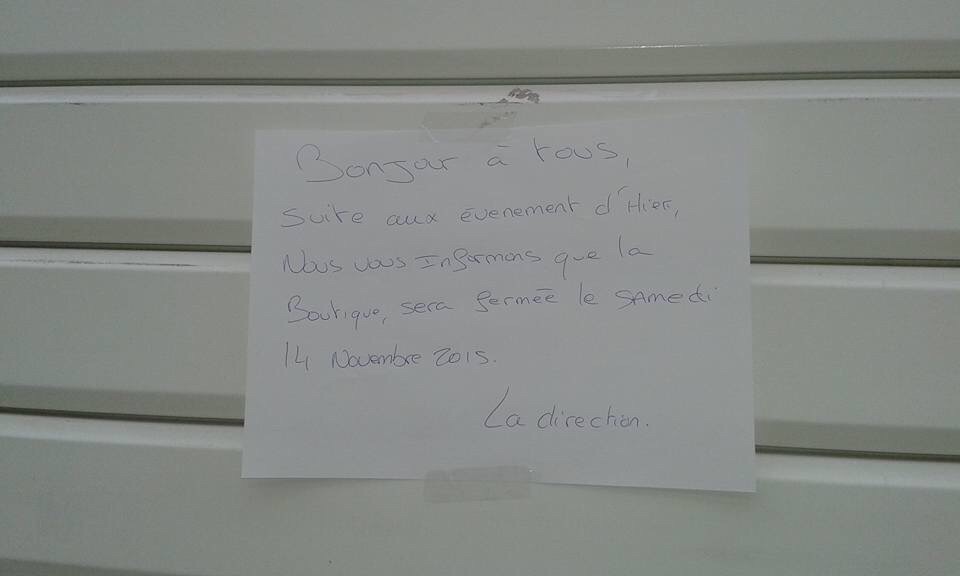 Bonjour à tous,
suite aux évenement d'Hier,
Nous vous Informons que la
Boutique, sera fermée le SAmedi
14 Novembre 2015.
La direction.